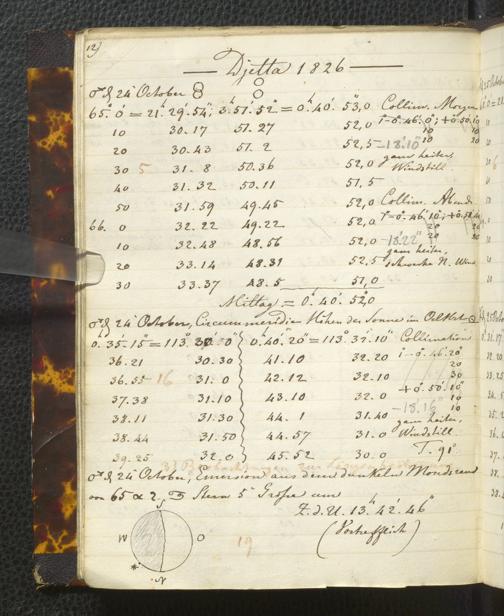 12)
Djetta 1826
♂ d. 24 October
65.° 0' = 21.h 29.' 54," 3.h 51.' 52" = 0.h 40.' 53,0 Collim. Morgen
10 30.17 51.27 52,0 i-0.° 46.' 0"; +0.° 50.' 10
20 30.43 51.2 52,5 -18.10"
30 5 31.8 50.36 52,0 ganz heiter, Windstill.
40 31.32 50.11 51,5
50 31.59 49.45 52,0 Collim. Abend
66. 0 32.22 49.22 52,0 i=0.° 46.' 10;
10 32.48 48.56 52,0 -18.22"
20 33.14 48.31 52,5 ganz heiter, schwache N. Wind
30 33.37 48.5 51,0
Mittag = 0.h 40.' 52,0
♂ d. 24 October, Circummeridian Höhen der Sonne im
0.35.15" = 113.° 30.' 0" 0.h 40.' 20" = 113.° 32.' 10" Collimation
36.21 30.30 41.10 32.20 i-0.° 46.' 20"
36.55 16 31.0 42.12 32.10 30
37.38 31.10 43.10 32.0 +0.° 50.' 10"
38.11 31.30 44.1 31.40 -18.16"
38.44 31.50 44.57 31.0 ganz heiter, Windstill.
39.25 32.0 45.52 30.0 T. 91°
♂ d. 24 October, Emersion aus dem dunkeln Mondsrand
von 65 α 2. Stern 5.ter Große um
Z. d. U. 13.h 42.' 46"
(Vortrefflich)
S
W O
* N
19